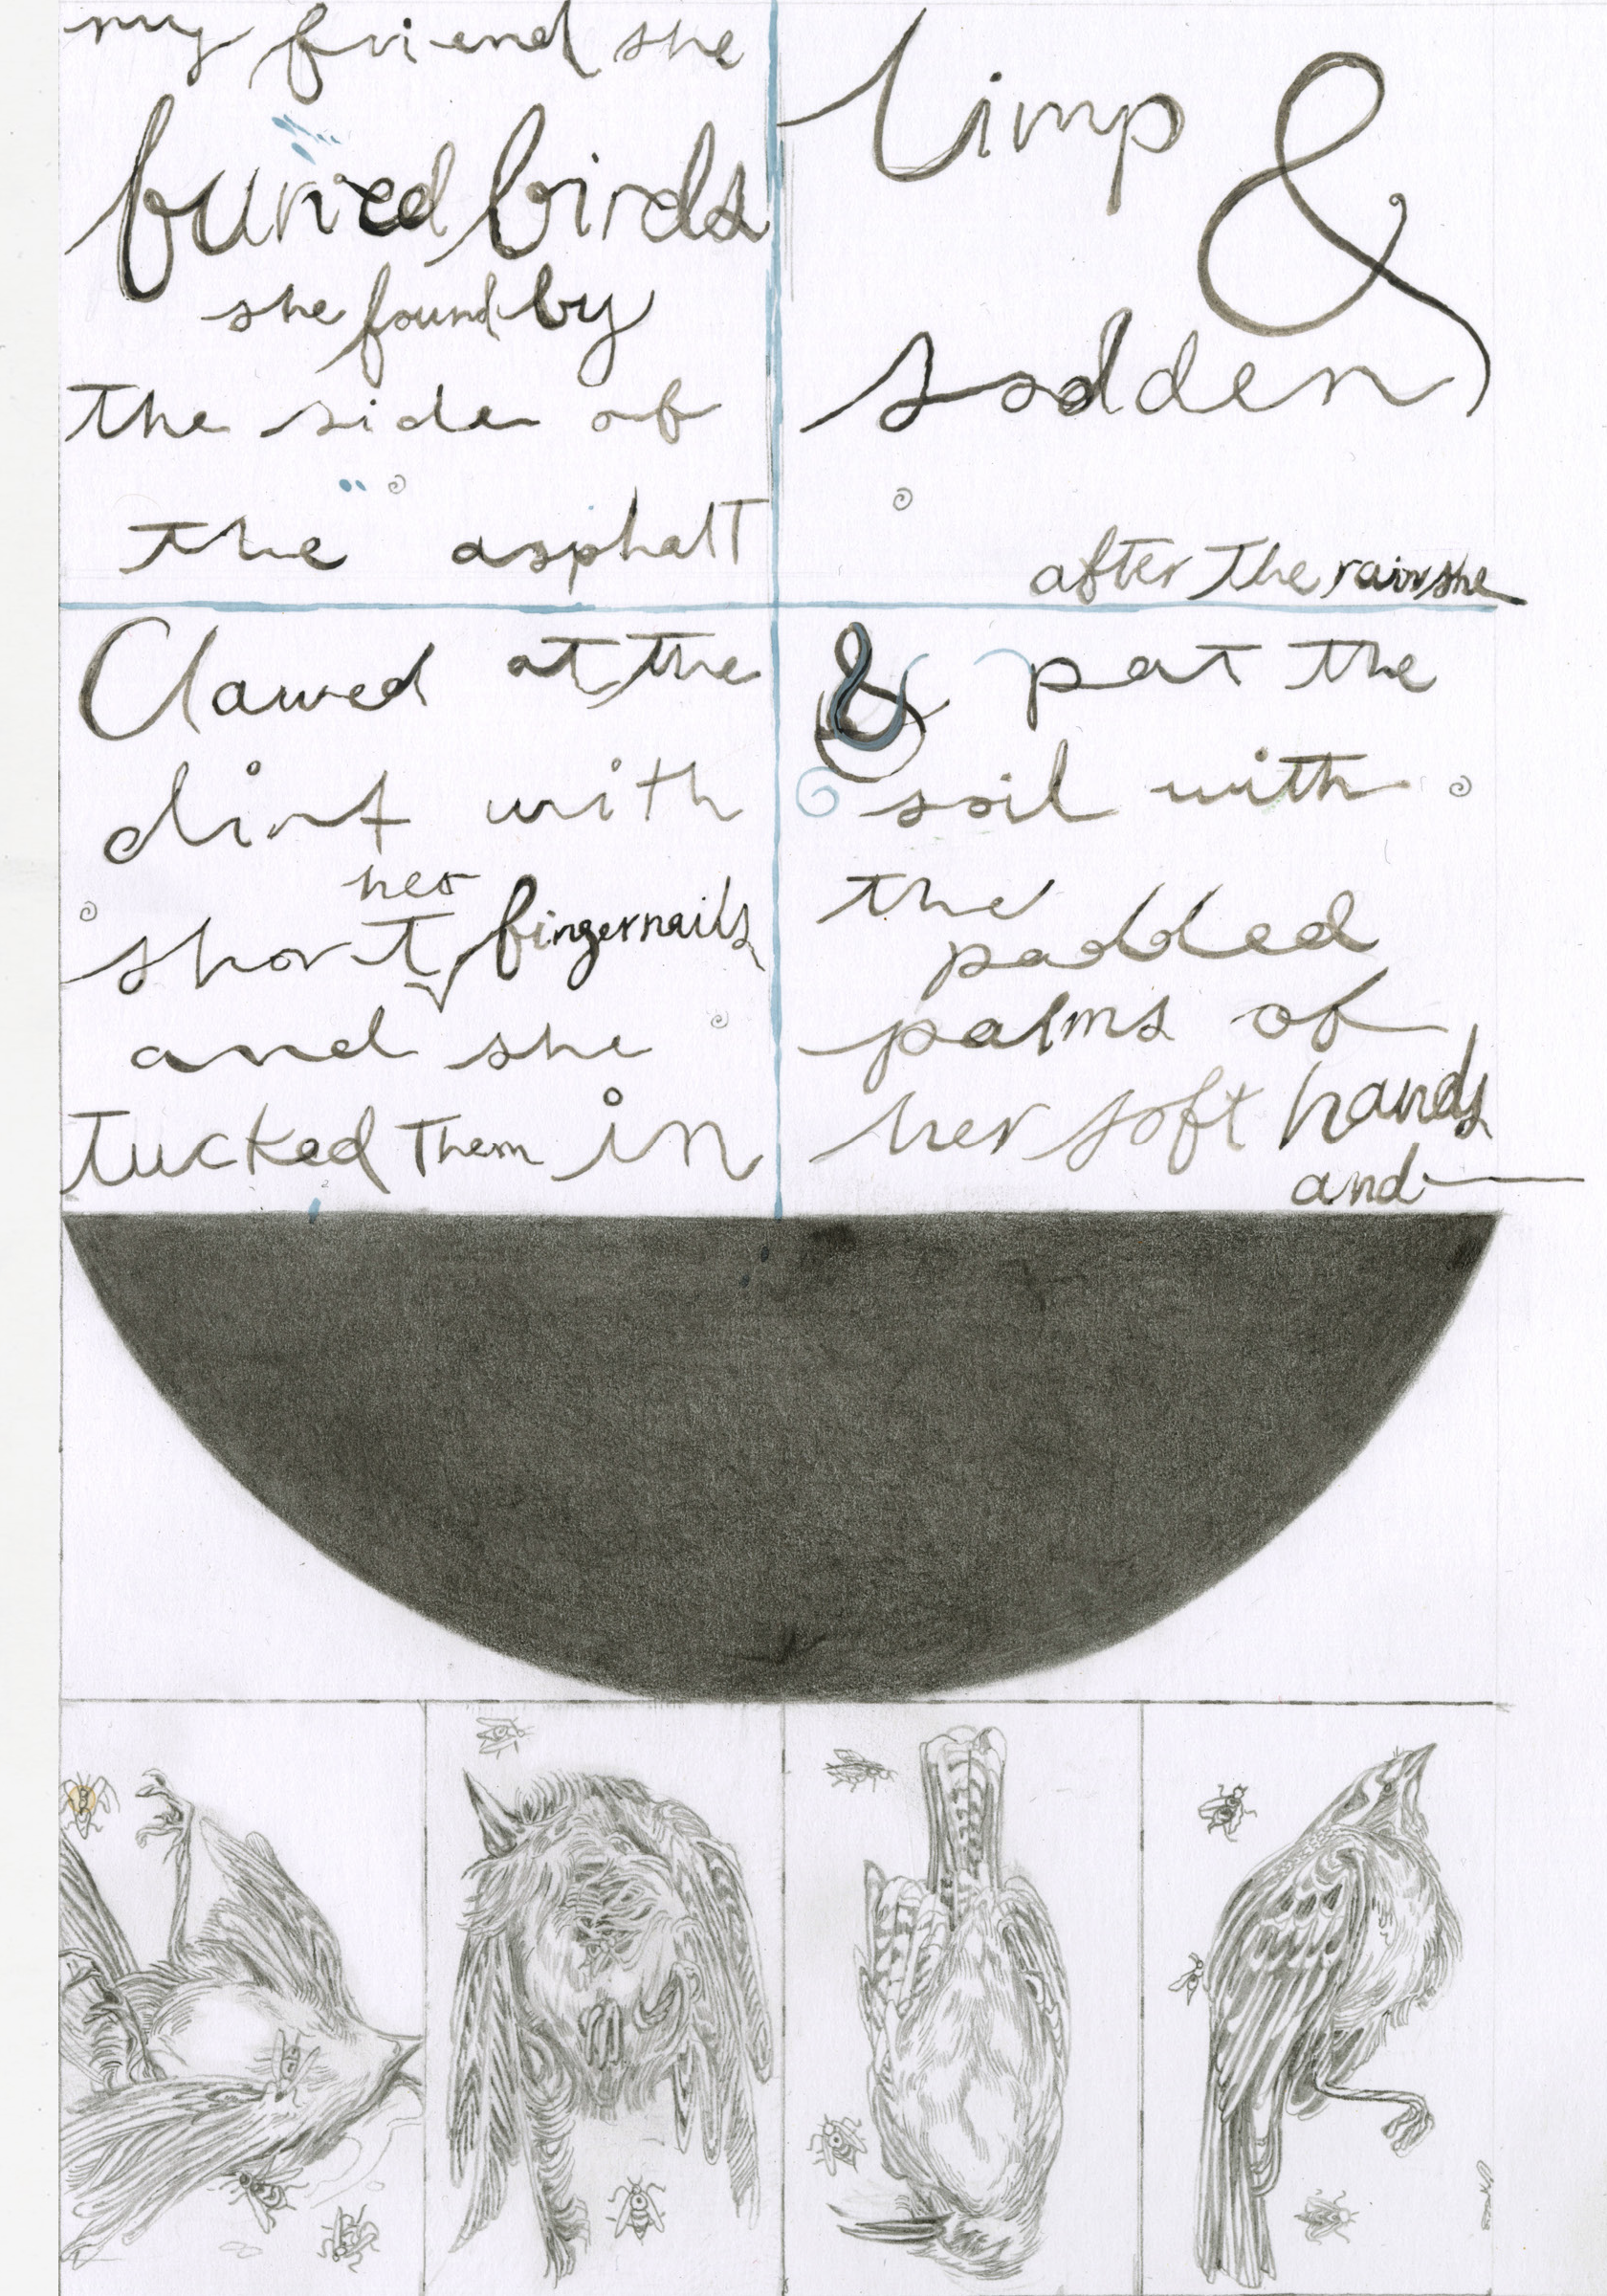 my friend she
buried birds
she found by
the side of
the asphalt
limp &
sodden
after the rain she
Clawed at the
dirt with
her
short fingernails
and she
tucked them in
& pat the
soil with
the
padded
palms of
her soft hands
and